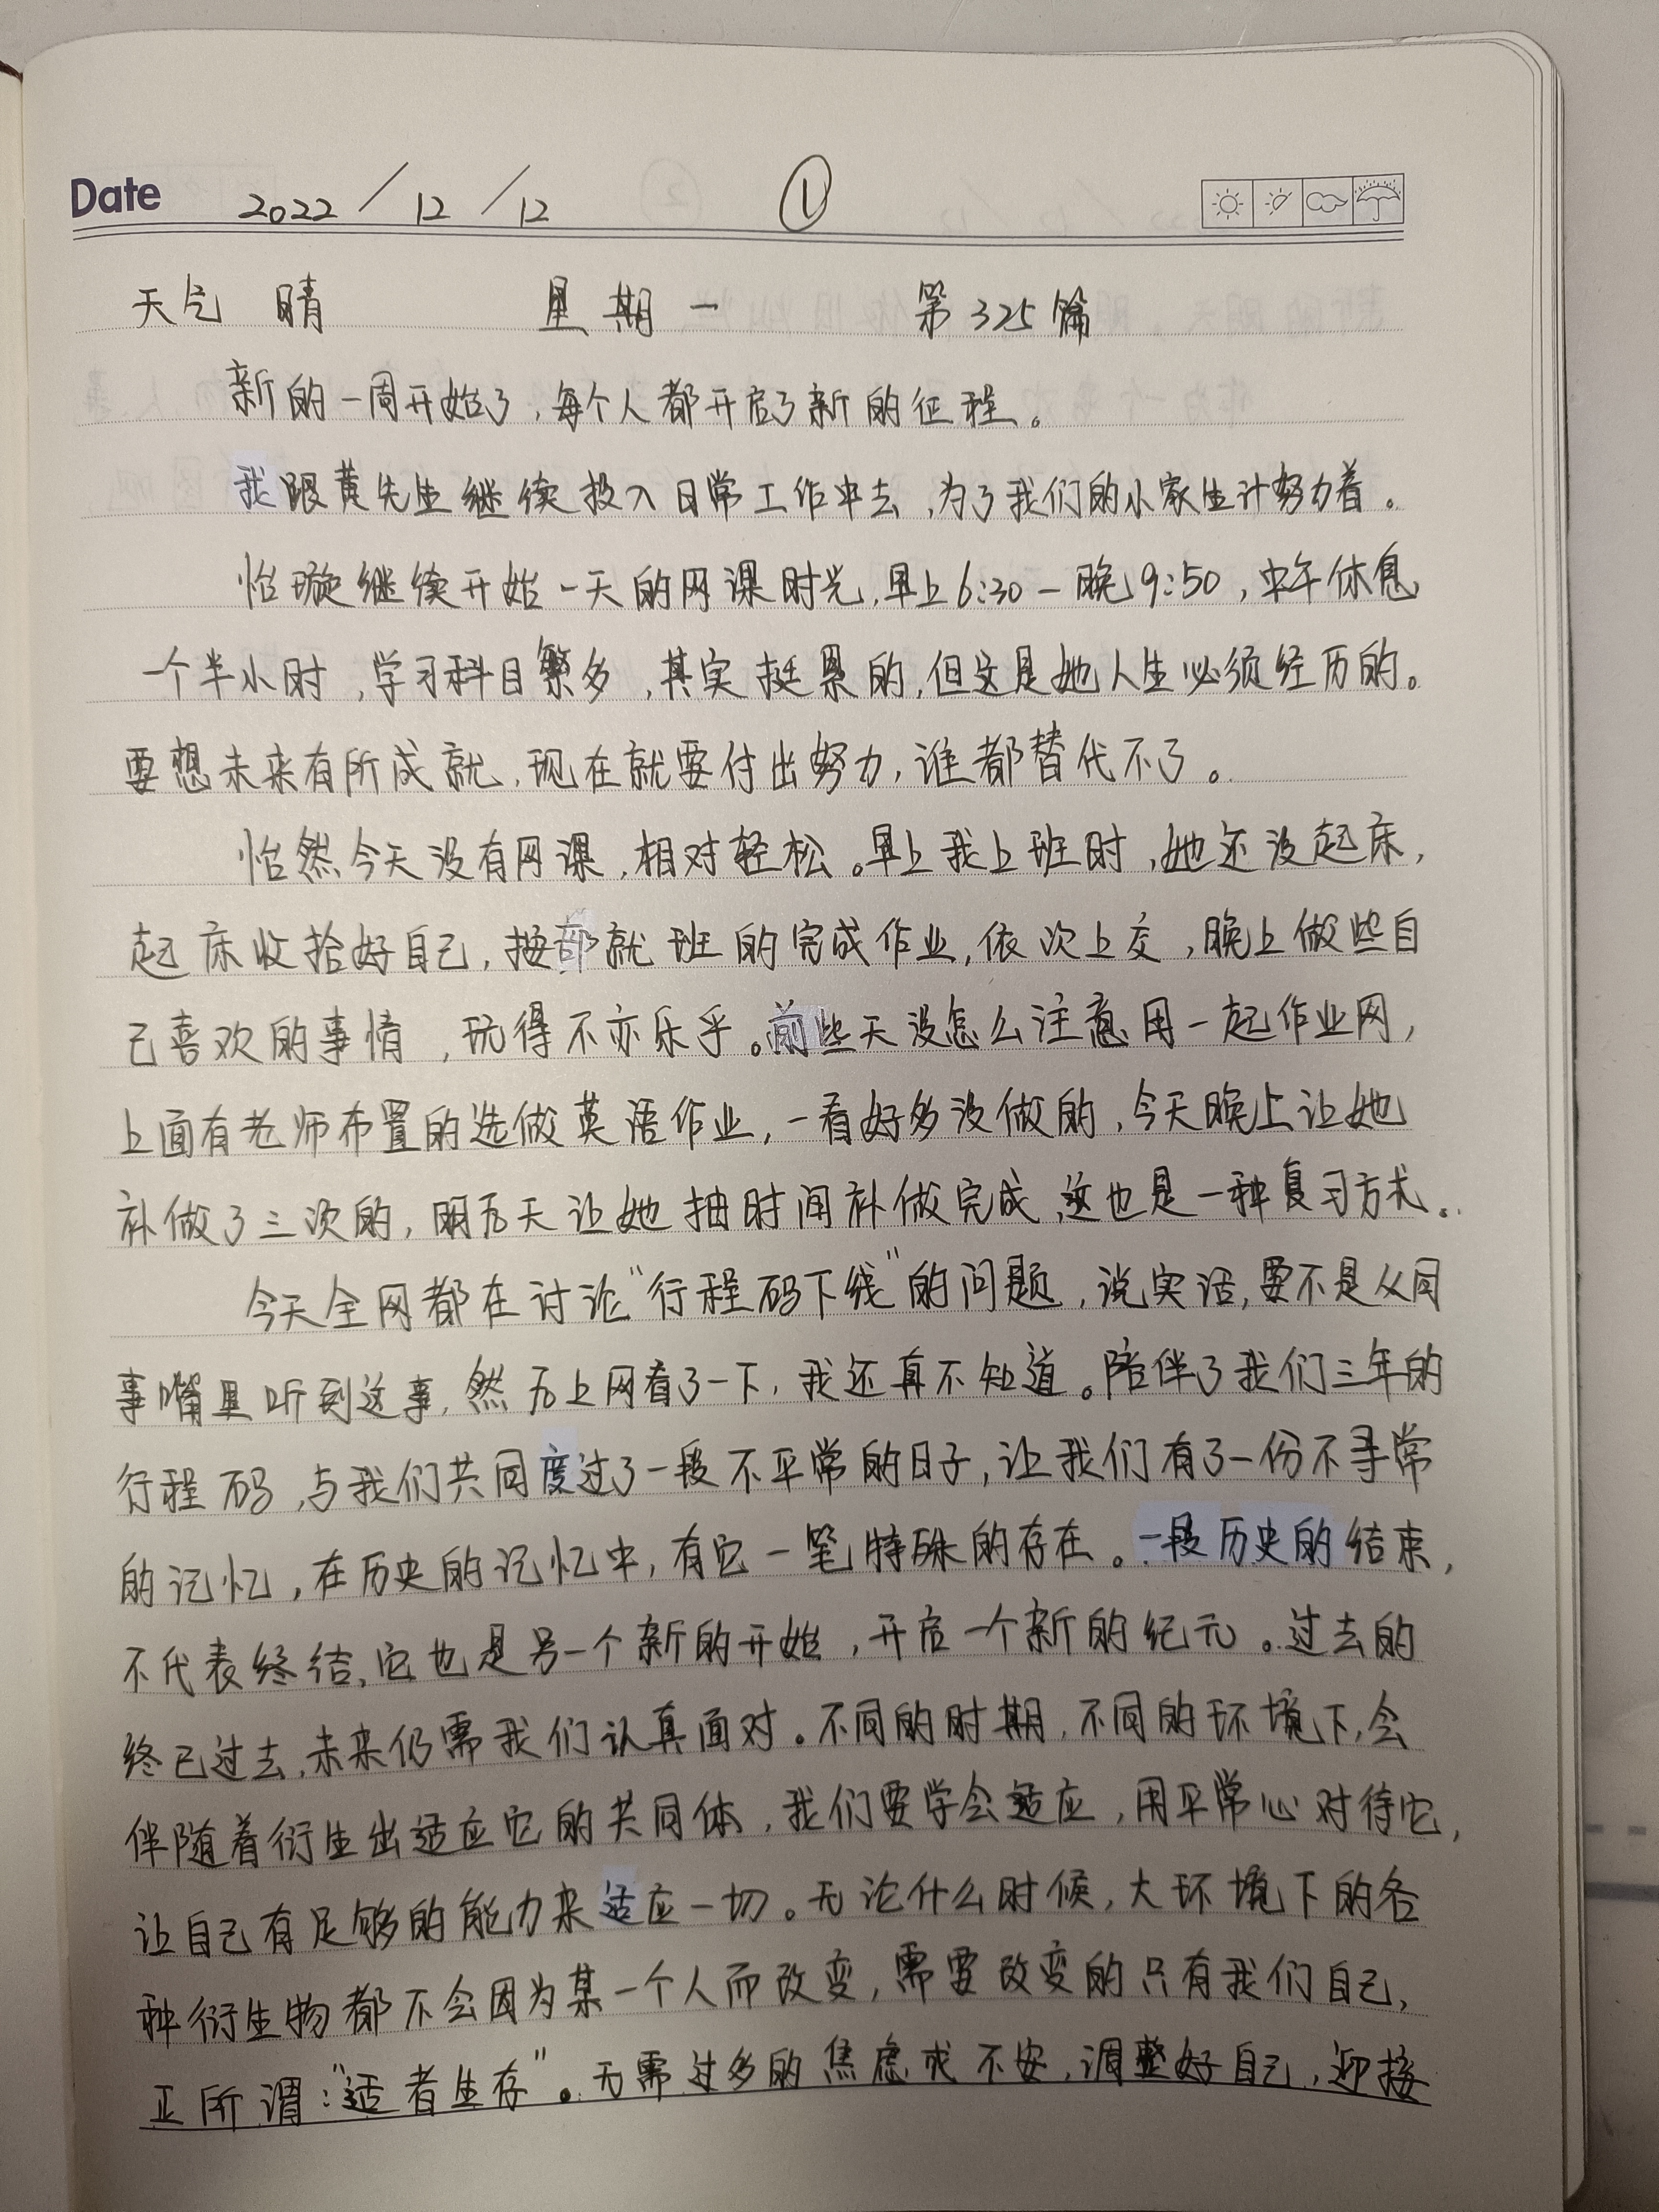 Date 2022/12/12 ①
天气 晴 星期一 第325篇
新的一周开始了,每个人都开启了新的征程。
我跟黄先生继续投入日常工作中去,为了我们的小家生计努力着。
怡璇继续开始一天的网课时光,早上6:30-晚9:50,中午休息
一个半小时,学习科目繁多,其实挺累的,但这是她人生必须经历的。
要想未来有所成就,现在就要付出努力,谁都替代不了。
怡然今天没有网课,相对轻松。早上我上班时,她还没起床,
起床收拾好自己,按部就班的完成作业,依次上交,晚上做些自
己喜欢的事情,玩得不亦乐乎。前些天没怎么注意用一起作业网,
上面有老师布置的选做英语作业,一看好多没做的,今天晚上让她
补做了三次的,明后天让她抽时间补做完成,这也是一种复习方式。
今天全网都在讨论“行程码下线”的问题,说实话,要不是从同
事嘴里听到这事,然后上网看了一下,我还真不知道。陪伴了我们三年的
行程码,与我们共同度过了一段不平常的日子,让我们有了一份不寻常
的记忆,在历史的记忆中,有它一笔特殊的存在。一段历史的结束,
不代表终结,它也是另一个新的开始,开启一个新的纪元。过去的
终已过去,未来仍需我们认真面对。不同的时期,不同的环境下,会
伴随着衍生出适应它的共同体,我们要学会适应,用平常心对待它,
让自己有足够的能力来适应一切。无论什么时候,大环境下的各
种衍生物都不会因为某一个人而改变,需要改变的只有我们自己,
正所谓:“适者生存”。无需过多的焦虑或不安,调整好自己,迎接